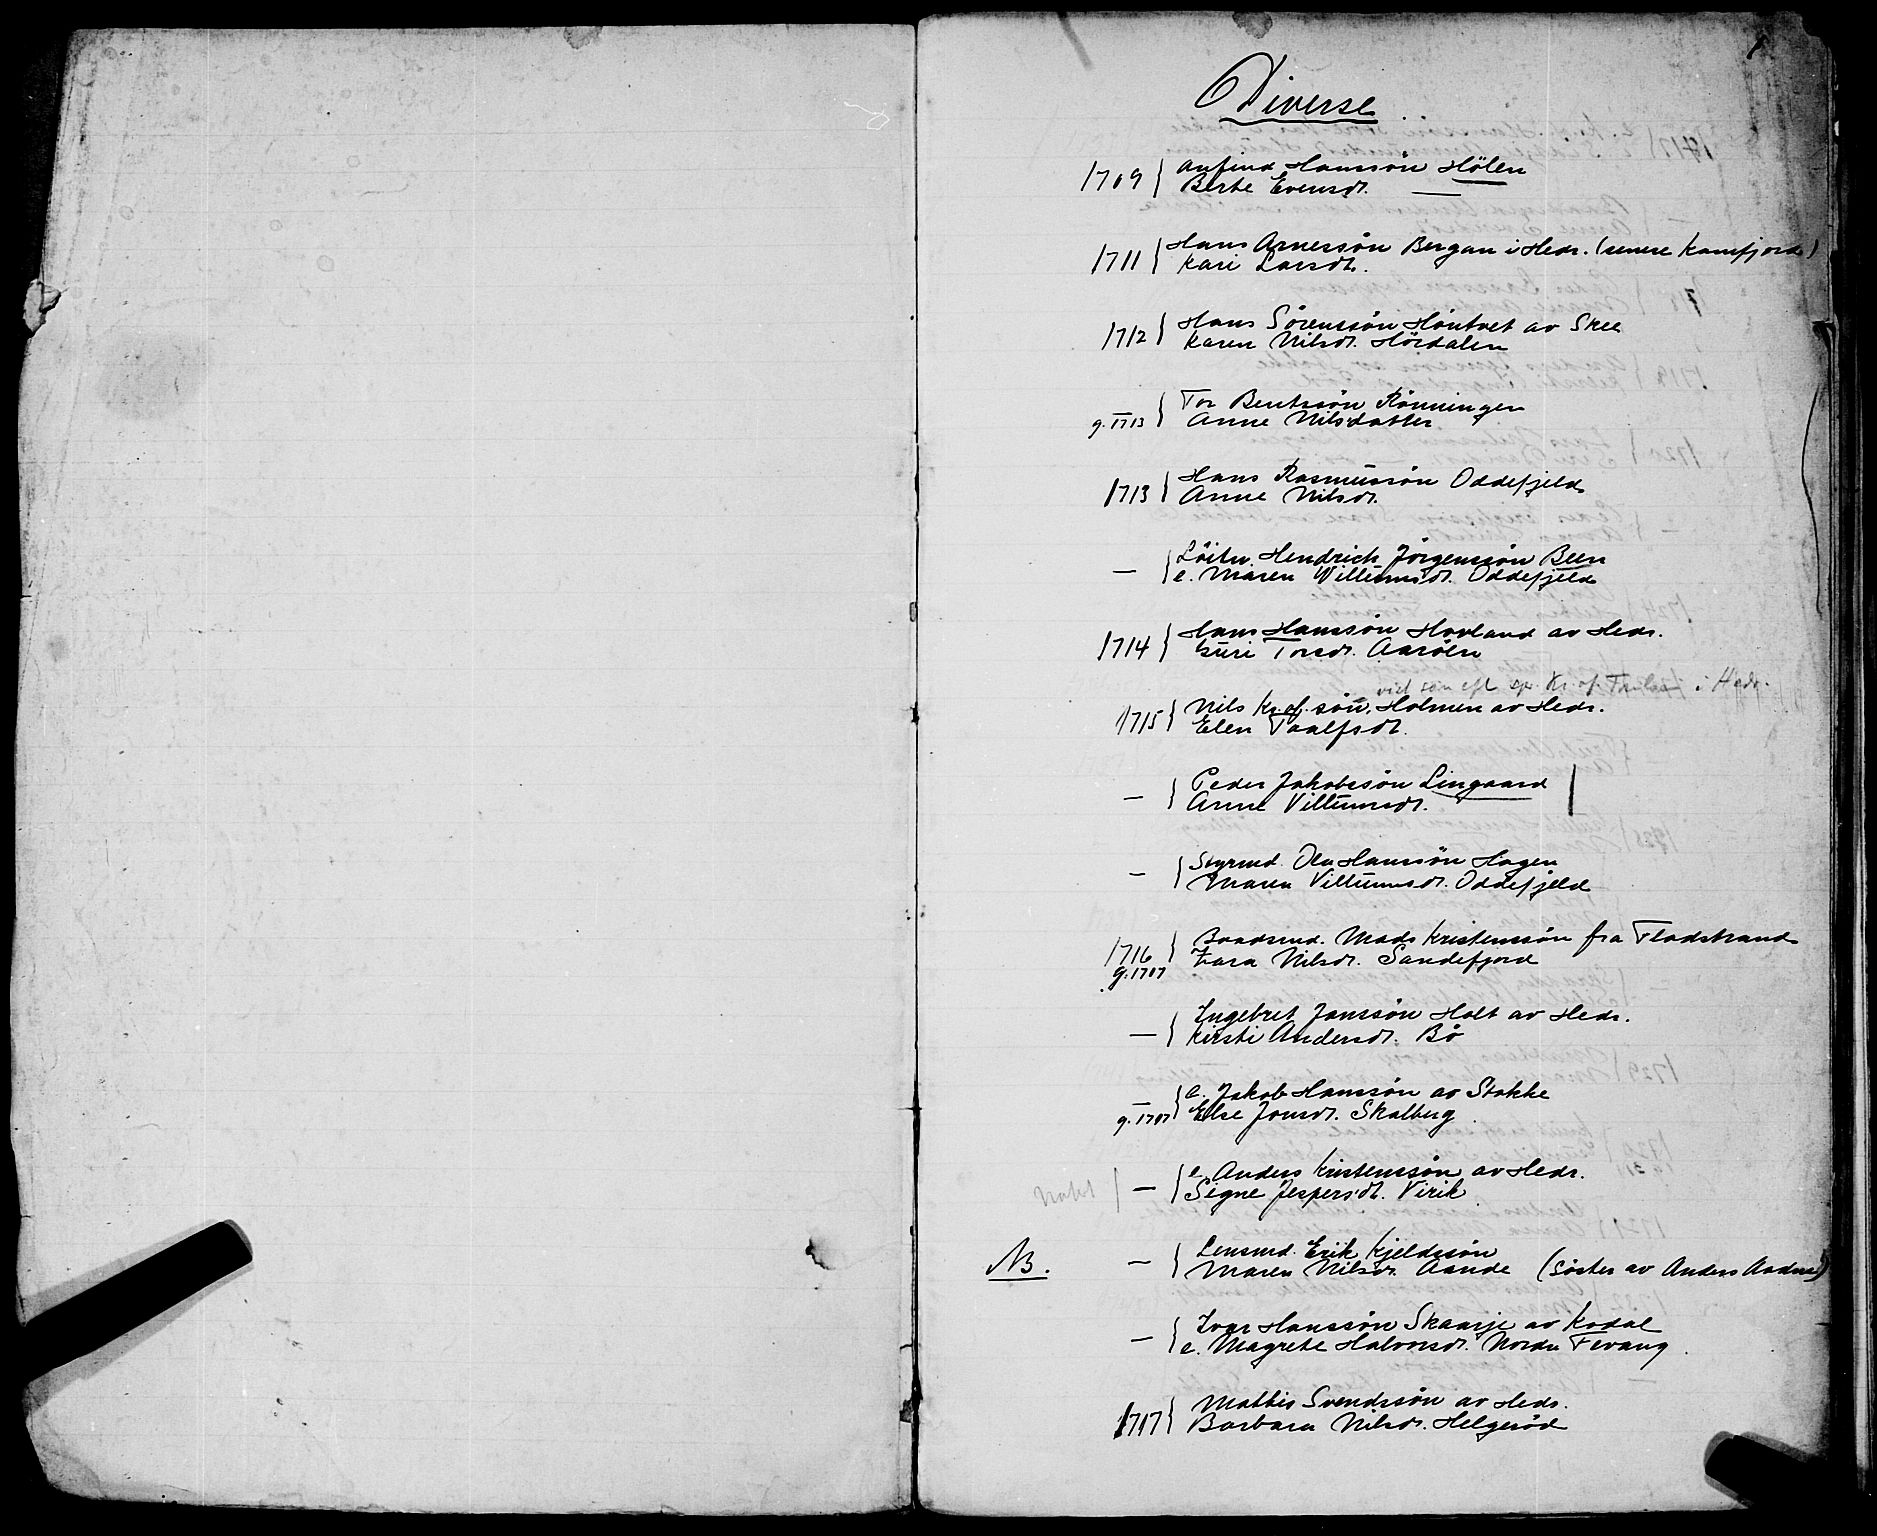 1
Diverse
1709 } Anfind Hanssön Hölen
Berte Evensdt. —
1711 } Hans Arnessön Bergan i Hedr. (senere Kamfjord)
Kari Larsdt.
1712 } Hans Sörenssön Höntvet av Skee
Karen Nilsdt. Hördalen
g. 1713 } Tor Bentssön Rönningen
Anne Nilsdatter
1713 } Hans Rasmussön Oddefjeld
Anne Nilsdt.
— } Löitn. Hendrich Jörgenssön Been
e. Maren Villumsdt. Oddefjeld
1714 } Hans Hanssön Hovland av Hedr.
Guri Torsdt. Aaröen
i Hedr.
1715 } Nils Kr.of.sön. Holmen av Hedr.
Elen Paalfsdt.
— } Peder Jakobssön Lingaard
Anne Villumsdt.
— } Styrmd. Ole Hanssön Hagen
Maren Villumsdt. Oddefjeld
1716 g. 1707 } Baadsmd. Mads Kristenssön fra Fladstrand
Zara Nilsdt. Sandefjord
— } Ingebret Janssön Holt av Hedr.
Kirsti Andersdt. Bö
— g. 1707 } e. Jakob Hanssön av Stokke
Else Jonsdt. Skalberg
— } e. Anders Kristenssön av Hedr.
Signe Jespersdt. Virik
NB. — } Lensmd. Erik Kjeldssön
Maren Nilsdt. Aande (söster av Anders Aadne)
— } Ivar Hanssön Skaarje av Kodal
e. Magrete Halvorsdt. Nordre Fevang
1717 } Mattis Svendssön av Hedr.
Barbara Nilsdt. Helgeröd